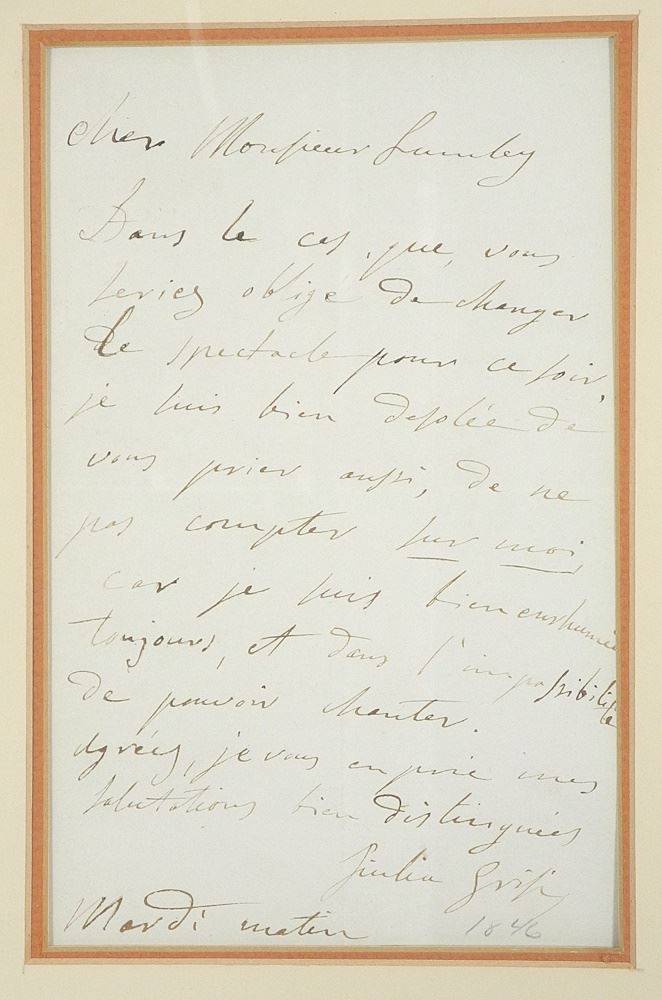 Cher Monsieur Lumley
Dans le cas, que, vous
seriez oblige de changer
le spectacle pour ce soir,
je suis bien desolée de
vous prier aussi, de ne
pas compter sur moi
car je suis bien enrhumée
toujours, et dans l'impossibilité
de pouvoir chanter.
Agréez, je vous en prie mes
salutations bien distinguées
Giulia Grisi
Mardi matin 1846